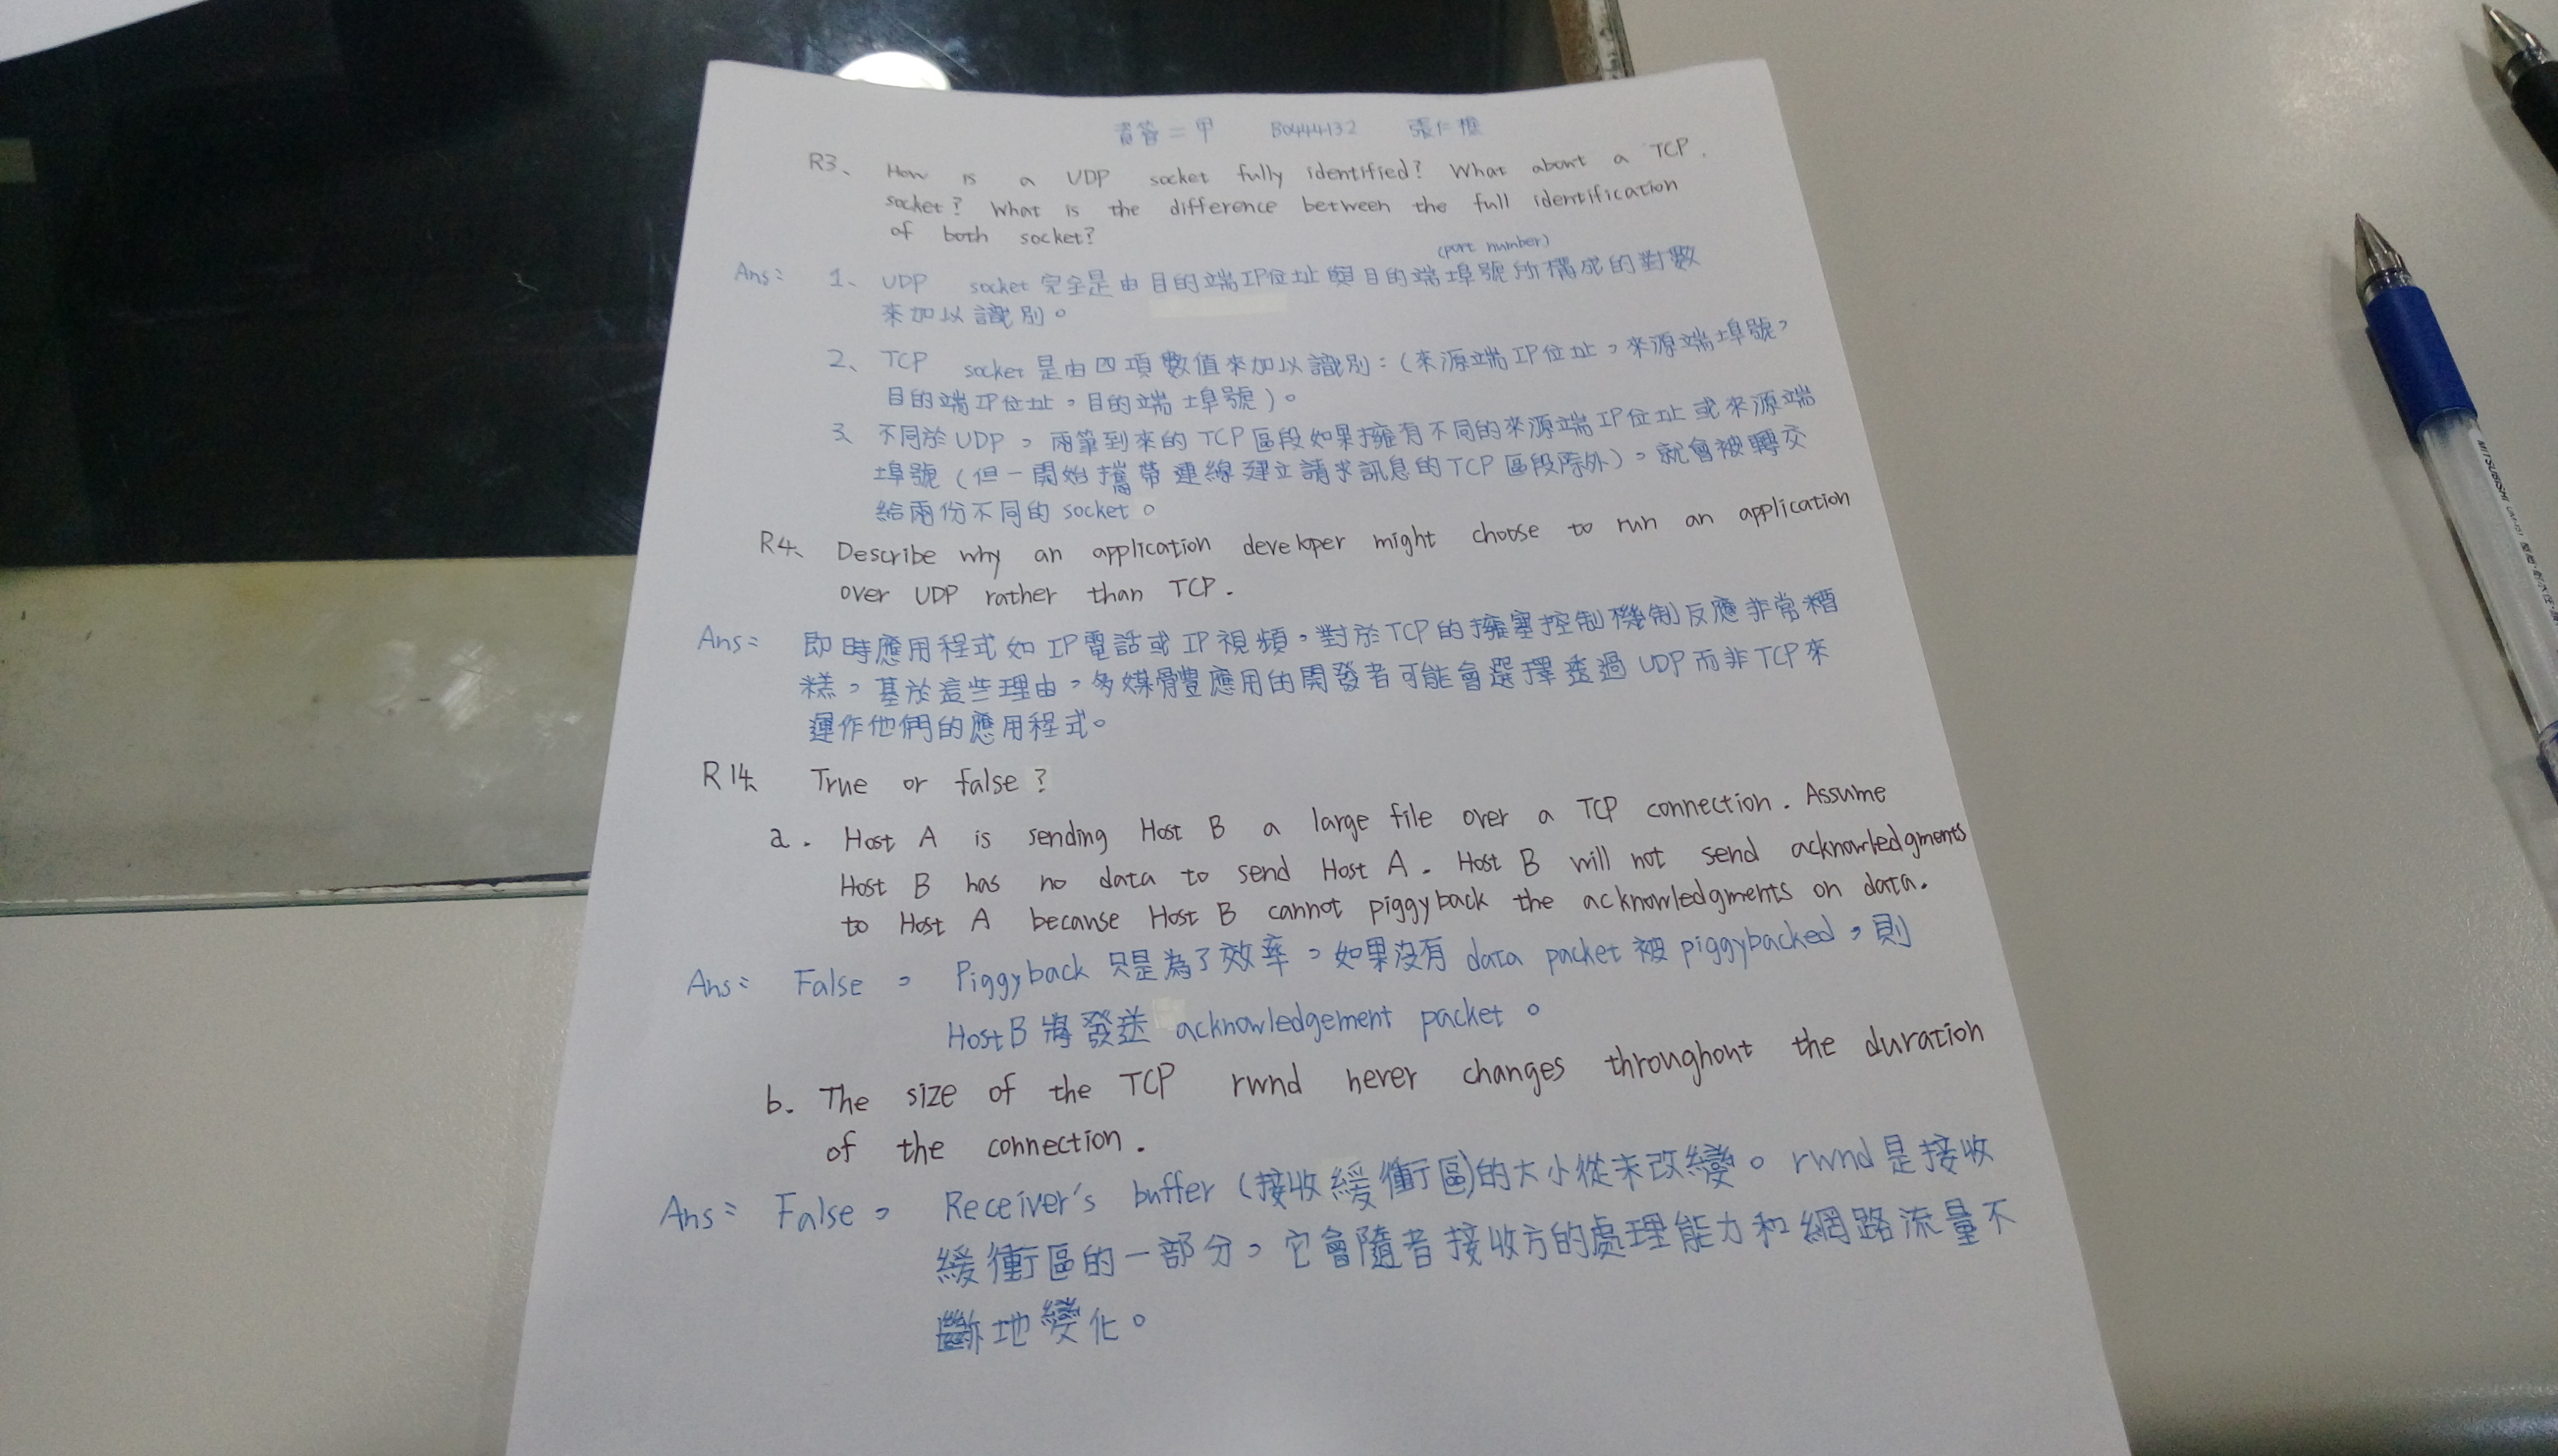 資管二甲 B0444132 張仁
R3、 How is a UDP socket fully identified? What about a TCP.
socket? What is the difference between the full identification
of both socket?
(port number)
Ans: 1、 UDP socket 完全是由目的端IP位址與目的端埠號所構成的對數
來加以識別。
2、 TCP socket是由四項數值來加以識別:(來源端IP位址,來源端埠號,
目的端IP位址,目的端埠號)。
3、 不同於UDP,兩筆到來的TCP區段如果擁有不同的來源端IP位址或來源端
埠號(但一開始攜帶連線建立請求訊息的TCP區段除外),就會被轉交
給兩份不同的socket。
R4、 Describe why an application developer might choose to run an application
over UDP rather than TCP.
Ans: 即時應用程式如IP電話或IP視頻,對於TCP的擁塞控制機制反應非常糟
糕,基於這些理由,多媒體應用的開發者可能會選擇透過UDP而非TCP來
運作他們的應用程式。
R14、 True or false?
a. Host A is sending Host B a large file over a TCP connection. Assume
Host B has no data to send Host A. Host B will not send acknowledgments
to Host A because Host B cannot piggyback the acknowledgments on data.
Ans: False, Piggyback只是為了效率,如果沒有 data packet被piggybacked,則
Host B將發送 acknowledgement packet。
b. The size of the TCP rwnd never changes throughout the duration
of the connection.
Ans: False, Receiver's buffer (接收緩衝區)的大小從未改變。rwnd是接收
緩衝區的一部分,它會隨者接收方的處理能力和網路流量不
斷地變化。
MITSUBISHI